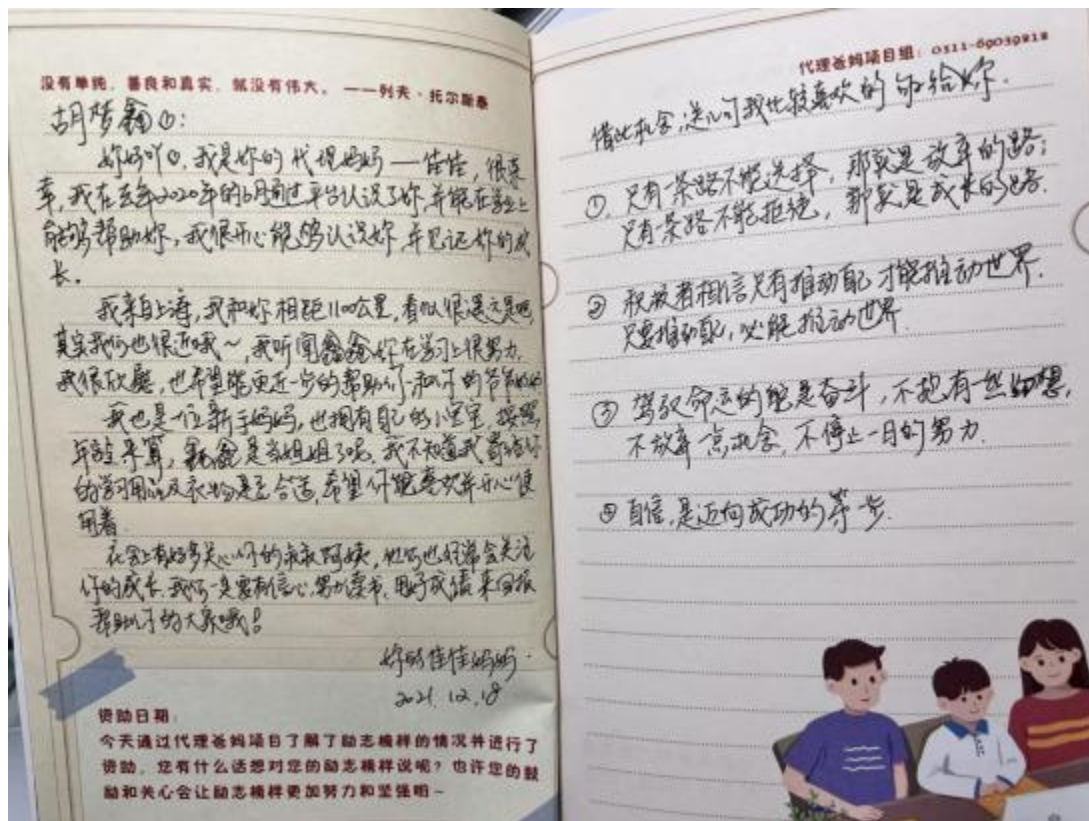 没有单纯、善良和真实，就没有伟大。——列夫·托尔斯泰
胡梦鑫:
妳好吖，我是妳的代理妈妈——佳佳，很荣
幸，我在去年2020年的6月通过平台认识了妳，并能在学业上
能够帮助妳，我很开心能够认识妳，并见记妳的成
长。
我来自上海，我和妳相距1100公里，看似很遥远是吧，
其实我们也很近哦～，我听闻鑫鑫妳在学习上很努力，
我很欣慰，也希望能更近一步的帮助们和的爷爷奶奶
我也是一位新手妈妈，也拥有自己的小宝宝，按照
年龄来算，鑫鑫是当姐姐了呢，我不知道我寄给你
的学习用品及衣物是否合适，希望你能喜欢并开心使
用着.
社会上有好多关心你的叔叔阿姨，他们也经常会关注
你的成长.我们一定要有信心，努力读书，用好成绩来回报
帮助你的大家哦！
妳的佳佳妈妈.
2021.12.18
资助日期：
今天通过代理爸妈项目了解了励志榜样的情况并进行了
资助，您有什么话想对您的励志榜样说呢？也许您的鼓
励和关心会让励志榜样更加努力和坚强呦~
代理爸妈项目组：0311-69039818
借此机会，送几句我比较喜欢的句给妳.
①.只有一条路不能选择，那就是放弃的路；
只有一条路不能拒绝，那就是成长的路.
② 积极者相信只有推动自己才能推动世界.
只要推动自己，必能推动世界.
③ 驾驭命运的舵是奋斗，不抱有一丝幻想，
不放弃一点机会，不停止一日的努力.
④ 自信，是迈向成功的第一步.